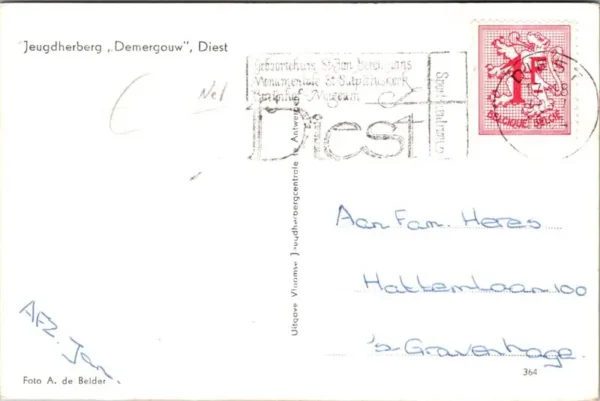 Jeugdherberg „Demergouw”, Diest
Geboortehuis St Jan Berchmans
Monumentale St Sulpitiuskerk
Museum
Diest
1F
BELGIQUE-BELGIË
Uitgave Vlaamse Jeugdherbergcentrale te Antwerpen
Aan Fam. Heres
Hattemlaan 100
's-Gravenhage.
AFZ. Jan.
Foto A. de Belder
364